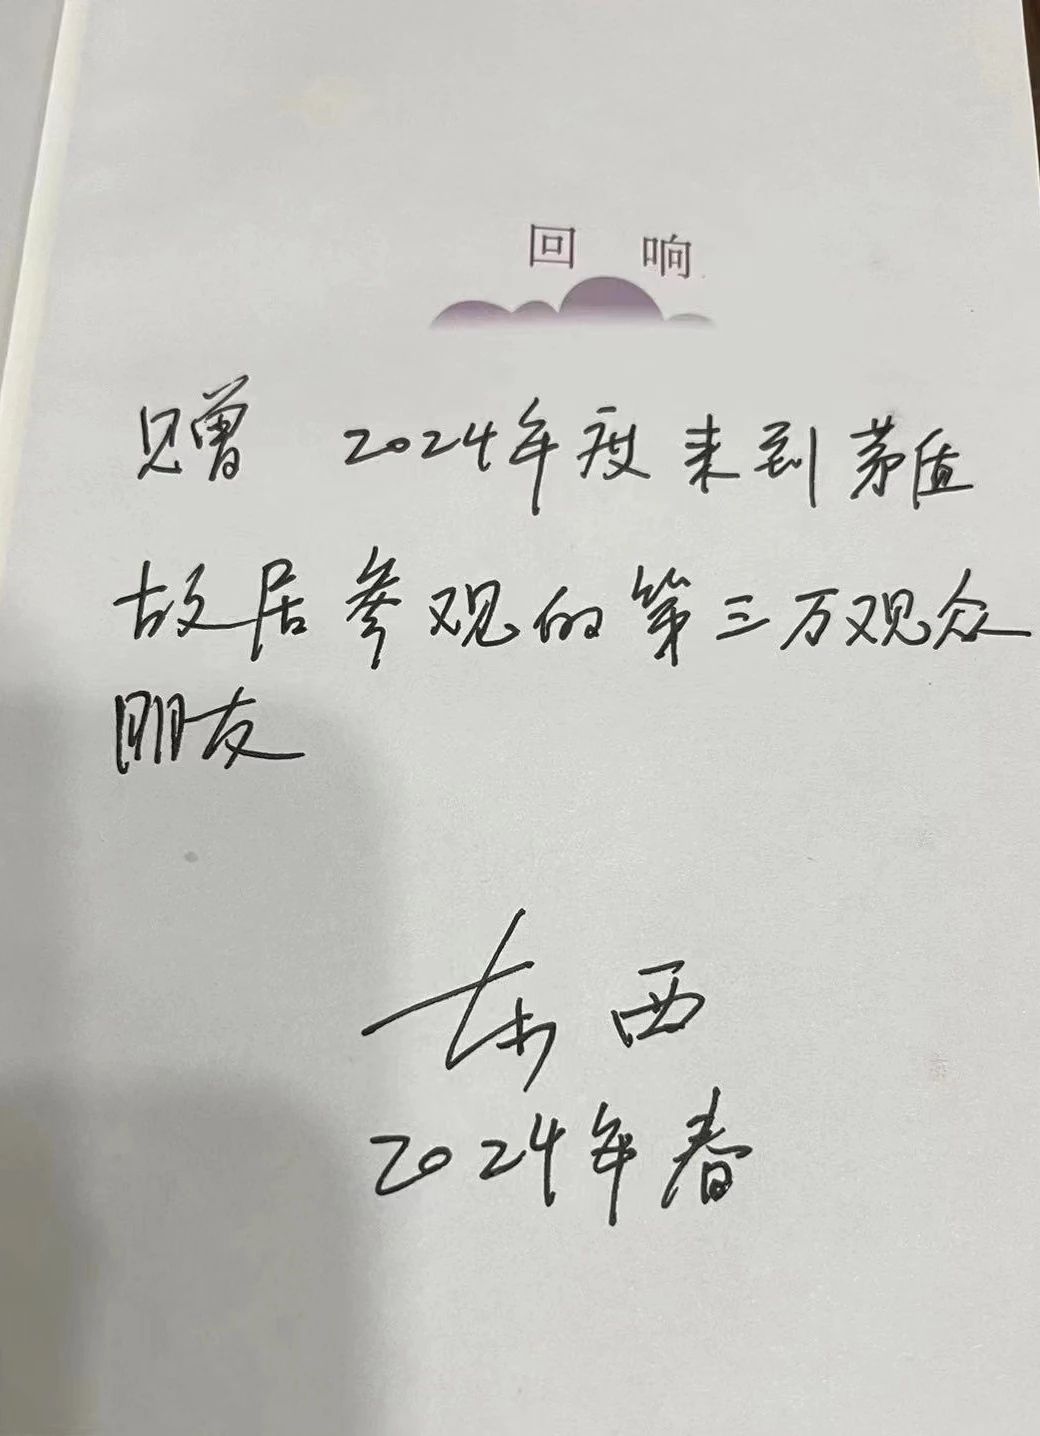 回响
赠 2024年度来到茅盾
故居参观的第三万观众
朋友
东西
2024年春